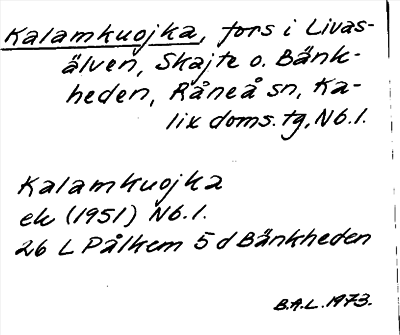 Kalamkuojka, fors i Livas-
älven, Skajte o. Bänk-
heden, Råneå sn, Ka-
lix doms. tg, Nb. l.
Kalamkuojka
ek (1951) Nb. l.
26 L Pålkem 5 d Bänkheden
B.A.L. 1973.